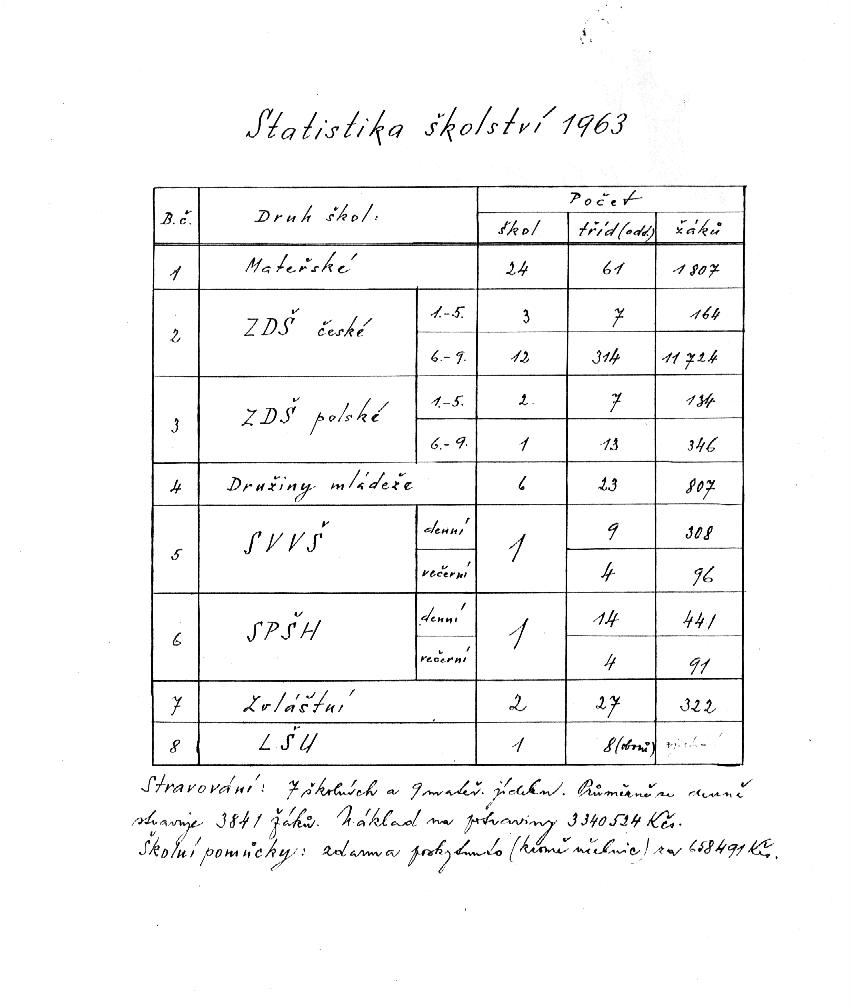 Statistika školství 1963
B.č. Druh škol: Počet
škol tříd (odd.) žáků
1 Mateřské 24 61 1807
2 ZDŠ české 1.-5. 3 7 164
6.-9. 12 314 11724
3 ZDŠ polské 1.-5. 2 7 134
6.-9. 1 13 346
4 Družiny mládeže 6 23 807
5 SVVŠ denní 1 9 308
večerní 4 96
6 SPŠH denní 1 14 441
večerní 4 91
7 Zvláštní 2 27 322
8 LŠU 1 8 (oborů)
Stravování: 7 školních a 9 mateř. jídeln. Průměrně se denně
stravuje 3841 žáků. Náklad na potraviny 3340524 Kčs.
Školní pomůcky: zdarma poskytnuto (kromě učebnic) za 658491 Kčs.